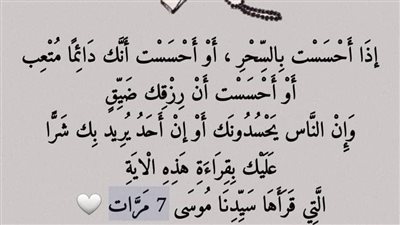 إذَا أَحْسَسْت بِالسِّحْرِ ، أَوْ أَحْسَسْت أَنَّك دَائِمًا مُتْعِب
أَوْ أَحْسَسْت أَنْ رِزْقِك ضَيِّقٍ
وَإِنْ النَّاس يَحْسُدُونَك أَوْ إنْ أَحَدُ يُرِيد بِك شَرًّا
عَلَيْك بِقِرَاءَةِ هَذِهِ الْايَةِ
الَّتِي قَرَأَهَا سَيِّدِنَا مُوسَى 7 مَرَّات 🤍